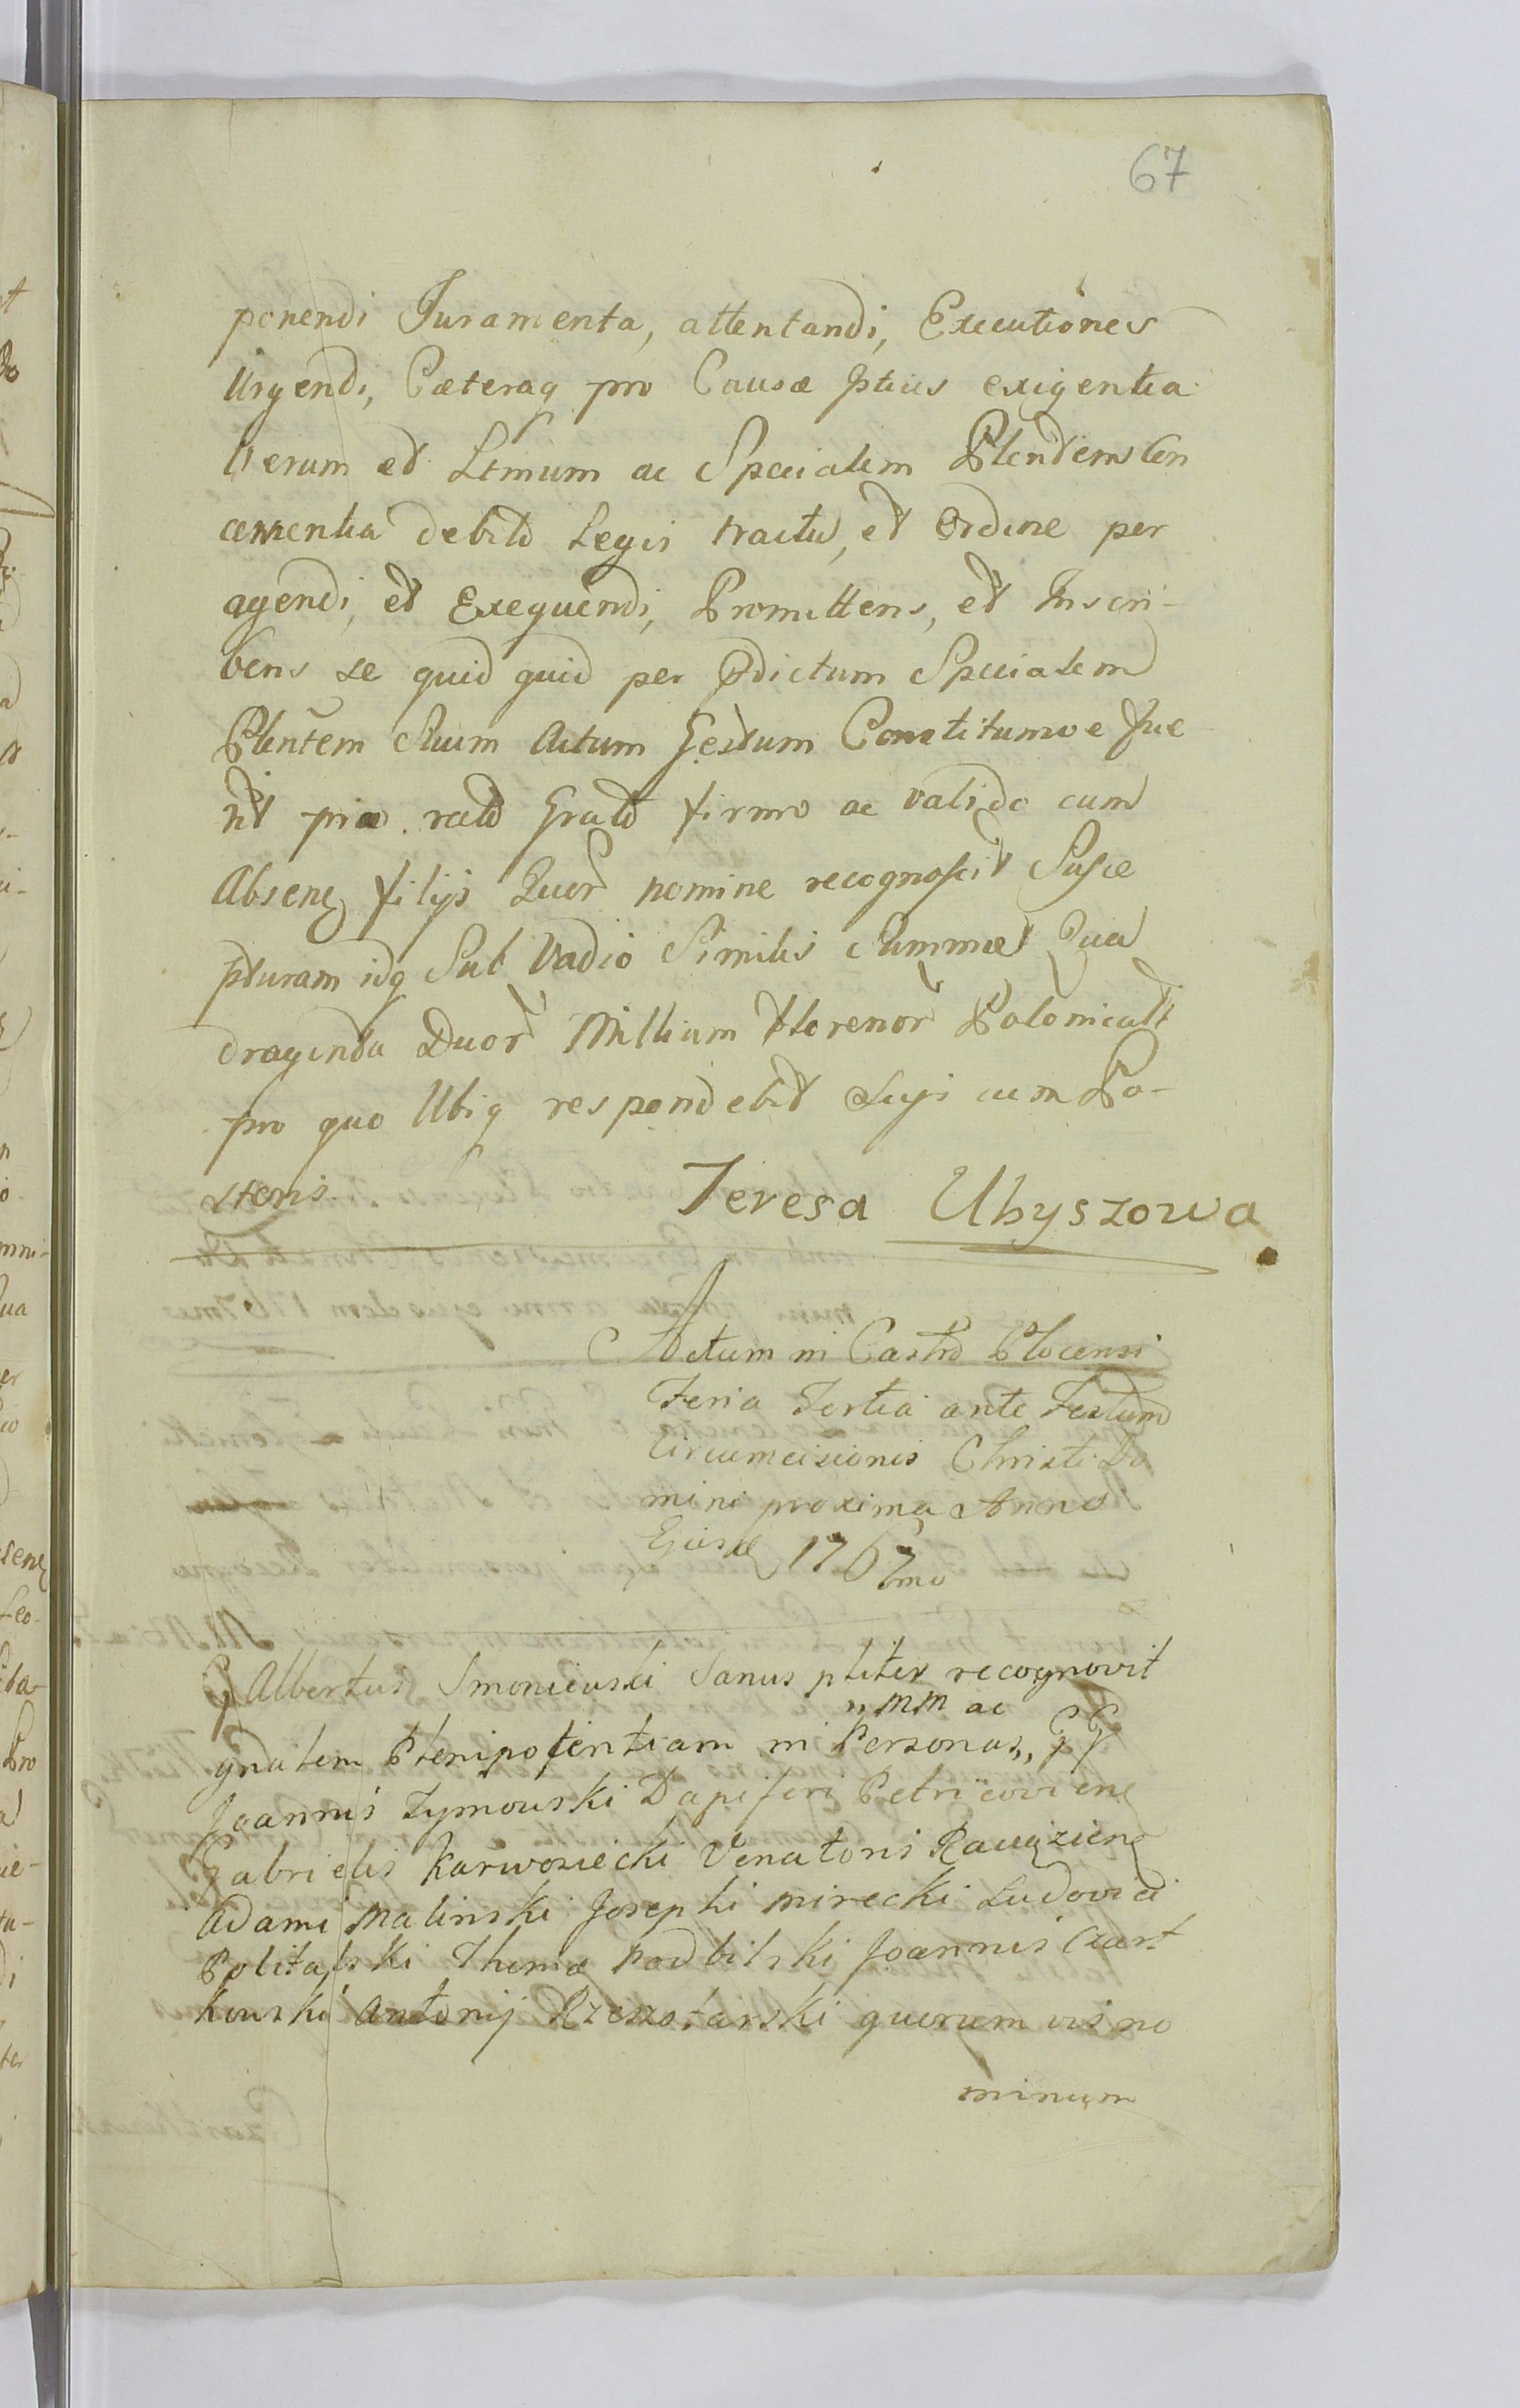 67
ponendi Juramenta, attentandi, Executiones
Urgendi, Cæteraq pro Causæ Istius exigentia
verum et Ltmum ac Specialem Plendem Con
cernentia debito Legis tractu, et Ordine per
agendi, et Exequendi, Promittens, et Inscri-
bens se quid quid per pdictum Specialem
Plentem Suum Actum Gestum Constitumve fue
rit pro rato Grato firmo ac valido cum
Absene filijs Quor nomine recognoscit Susce
pturam idq Sub Vadio Similis Summæ Qua
draginta Duor Millium Florenor Polonicall
pro quo Ubiq respondebit Suji cum Po-
steris.
Teresa Uhyszowa
Actum in Castro Plocensi
Feria Tertia ante Festum
Circumcisionis Christi Do
mini proxima Anno
Ejusd 1767mo
G Albertus Smoniewski Sanus pliter recognovit
gnalem Plenipotentiam in Personas,, GG
,, MM ac
Joannis Zymowski Dapiferi Petricovienc
Gabrielis Karwosiecki Venatoris Raciązienc
Adami Malinski Josephi Mirecki Ludovici
Politalski Thomæ Podbilski Joannis Czart
kowski Antonij Rzeszotarski quorum vis no
minum